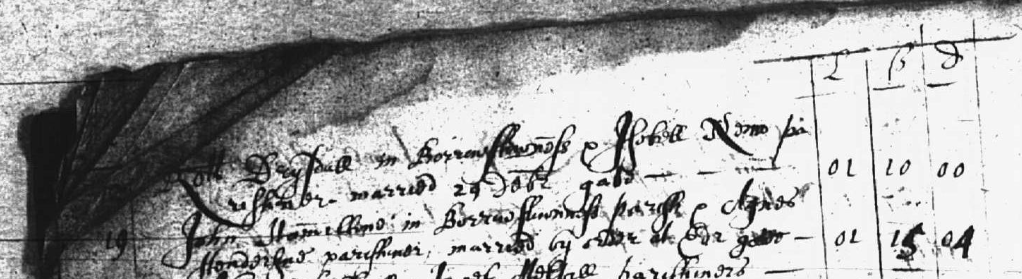 L ß d
Robt Drysdall in Borrowstounness & Issobell Nemo pa
rishiner married 29 Debr gave 01 10 00
19 John Hamiltone in Borrowstounness parish & Agnes
Hendersone parishiner, married by order at Edr gave 01 15 04
parishiners